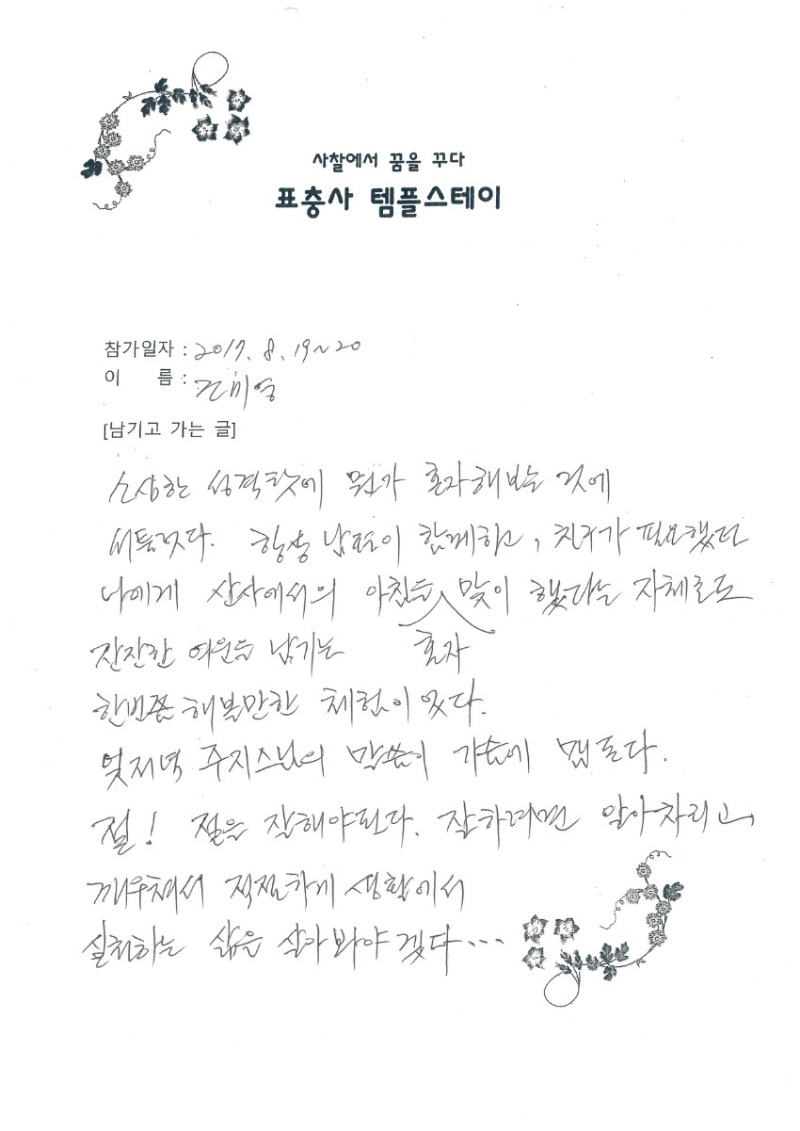 사찰에서 꿈을 꾸다
표충사 템플스테이
참가일자 : 2017. 8. 19~20
이 름 : 미영
[남기고 가는 글]
소심한 성격탓에 뭔가 혼자해보는 것에
서툴었다. 항상 남편이 함께하고, 친구가 필요했던
나에게 산사에서의 아침을 맞이 했다는 자체로도
잔잔한 여운을 남기는 혼자
한번쯤 해볼만한 체험이었다.
엊저녁 주지스님의 말씀이 가슴에 맴돈다.
절! 절을 잘해야된다. 잘하려면 알아차리고,
깨우쳐서 적절하게 생활에서
실천하는 삶을 살아봐야겠다...